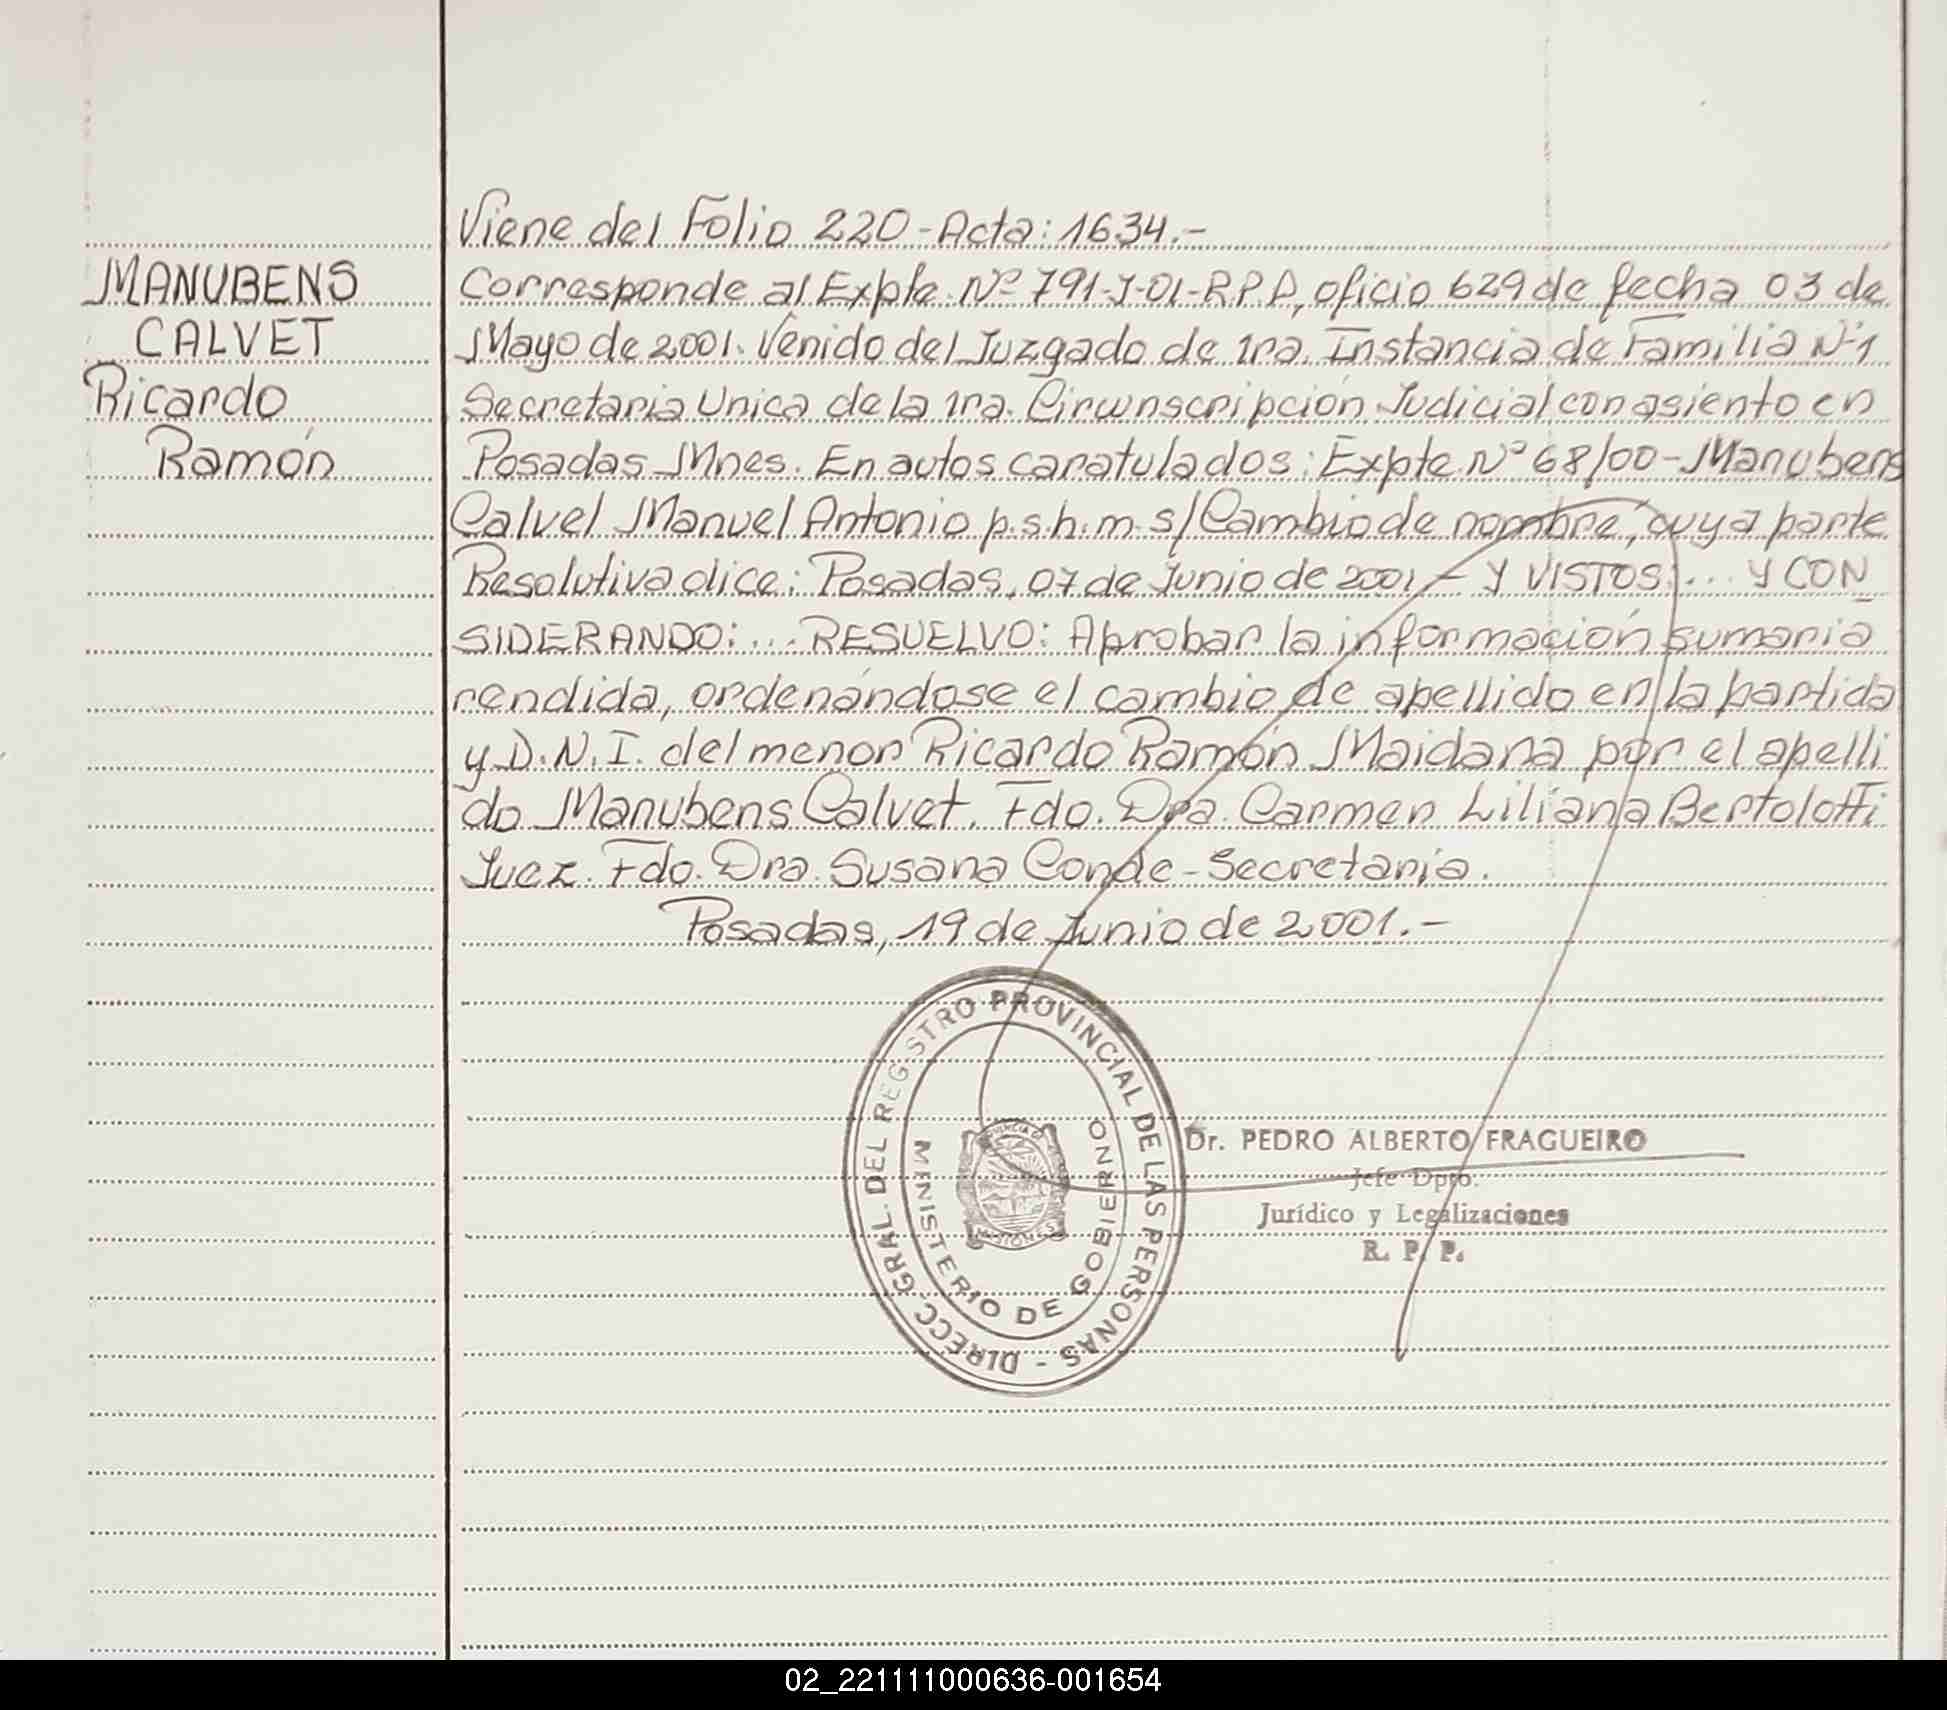 Viene del Folio 220 - Acta: 1634.-
MANUBENS
CALVET
Ricardo
Ramón
Corresponde al Expte. Nº 791-J-01-R.P.P, oficio 629 de fecha 03 de
Mayo de 2001. Venido del Juzgado de 1ra. Instancia de Familia Nº1
Secretaria Unica de la 1ra. Circunscripción Judicial con asiento en
Posadas Mnes. En autos caratulados: Expte Nº 68/00-Manubens
Calvel Manuel Antonio p.s.h.m. s/Cambio de nombre, cuya parte
Resolutiva dice: Posadas, 07 de Junio de 2001 - Y VISTOS:... Y CON
SIDERANDO:... RESUELVO: Aprobar la información sumaria
rendida, ordenándose el cambio de apellido en la partida
y D.N.I. del menor Ricardo Ramón Maidana por el apelli
do Manubens Calvet. Fdo. Dra. Carmen Liliana Bertolotti
Juez. Fdo. Dra. Susana Conde - Secretaria.
Posadas, 19 de Junio de 2001.-
DIRECC. GRAL. DEL REGISTRO PROVINCIAL DE LAS PERSONAS -
MINISTERIO DE GOBIERNO
MISIONES
Dr. PEDRO ALBERTO FRAGUEIRO
Jefe Dpto.
Jurídico y Legalizaciones
R. P. P.
02_221111000636-001654